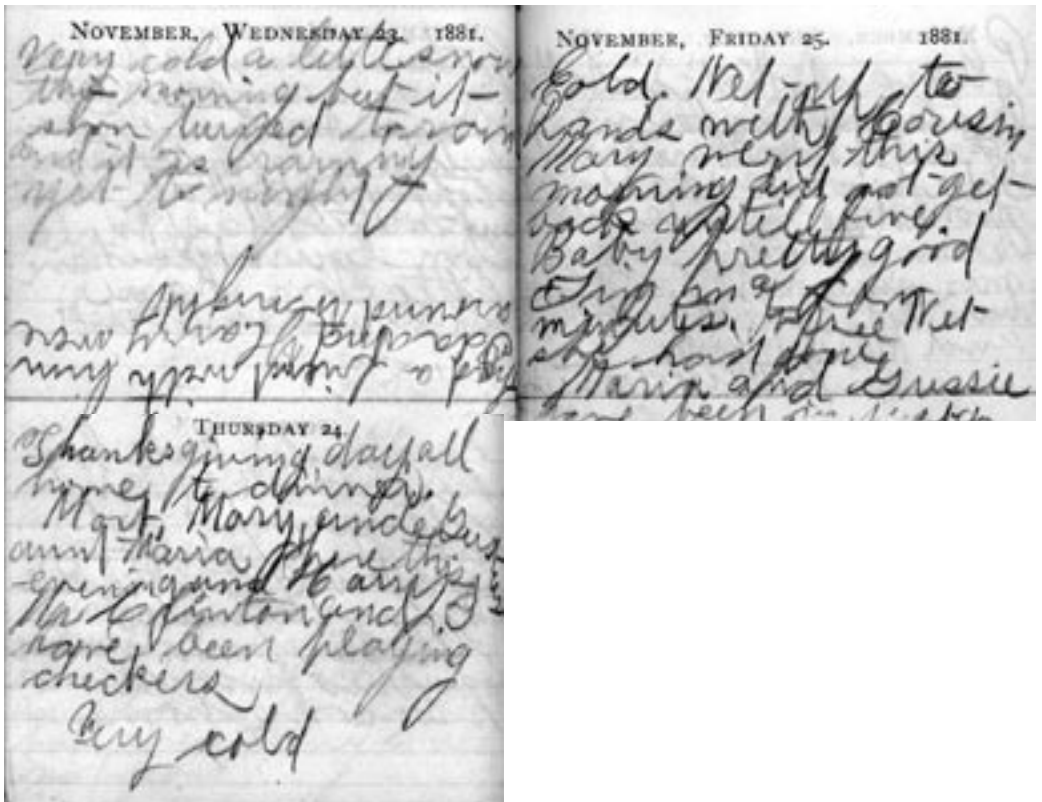 NOVEMBER, WEDNESDAY 23. 1881.
Very cold a little snow
this morning but it
soon turned to rain
and it is raining
yet to night
had a visit with him
Harry
around to night
THURSDAY 24.
Thanksgiving day all
home to dinner.
Mort, Mary and Gus
aunt Maria here this
evening and Harry
Mr Clinton and I
have been playing
checkers
Very cold
NOVEMBER, FRIDAY 25. 1881.
Cold. Net up to
hands with Cousin
Mary went this
morning did not get
back until five
Baby pretty good
minutes. Net
she had gone
Maria and Gussie
have been